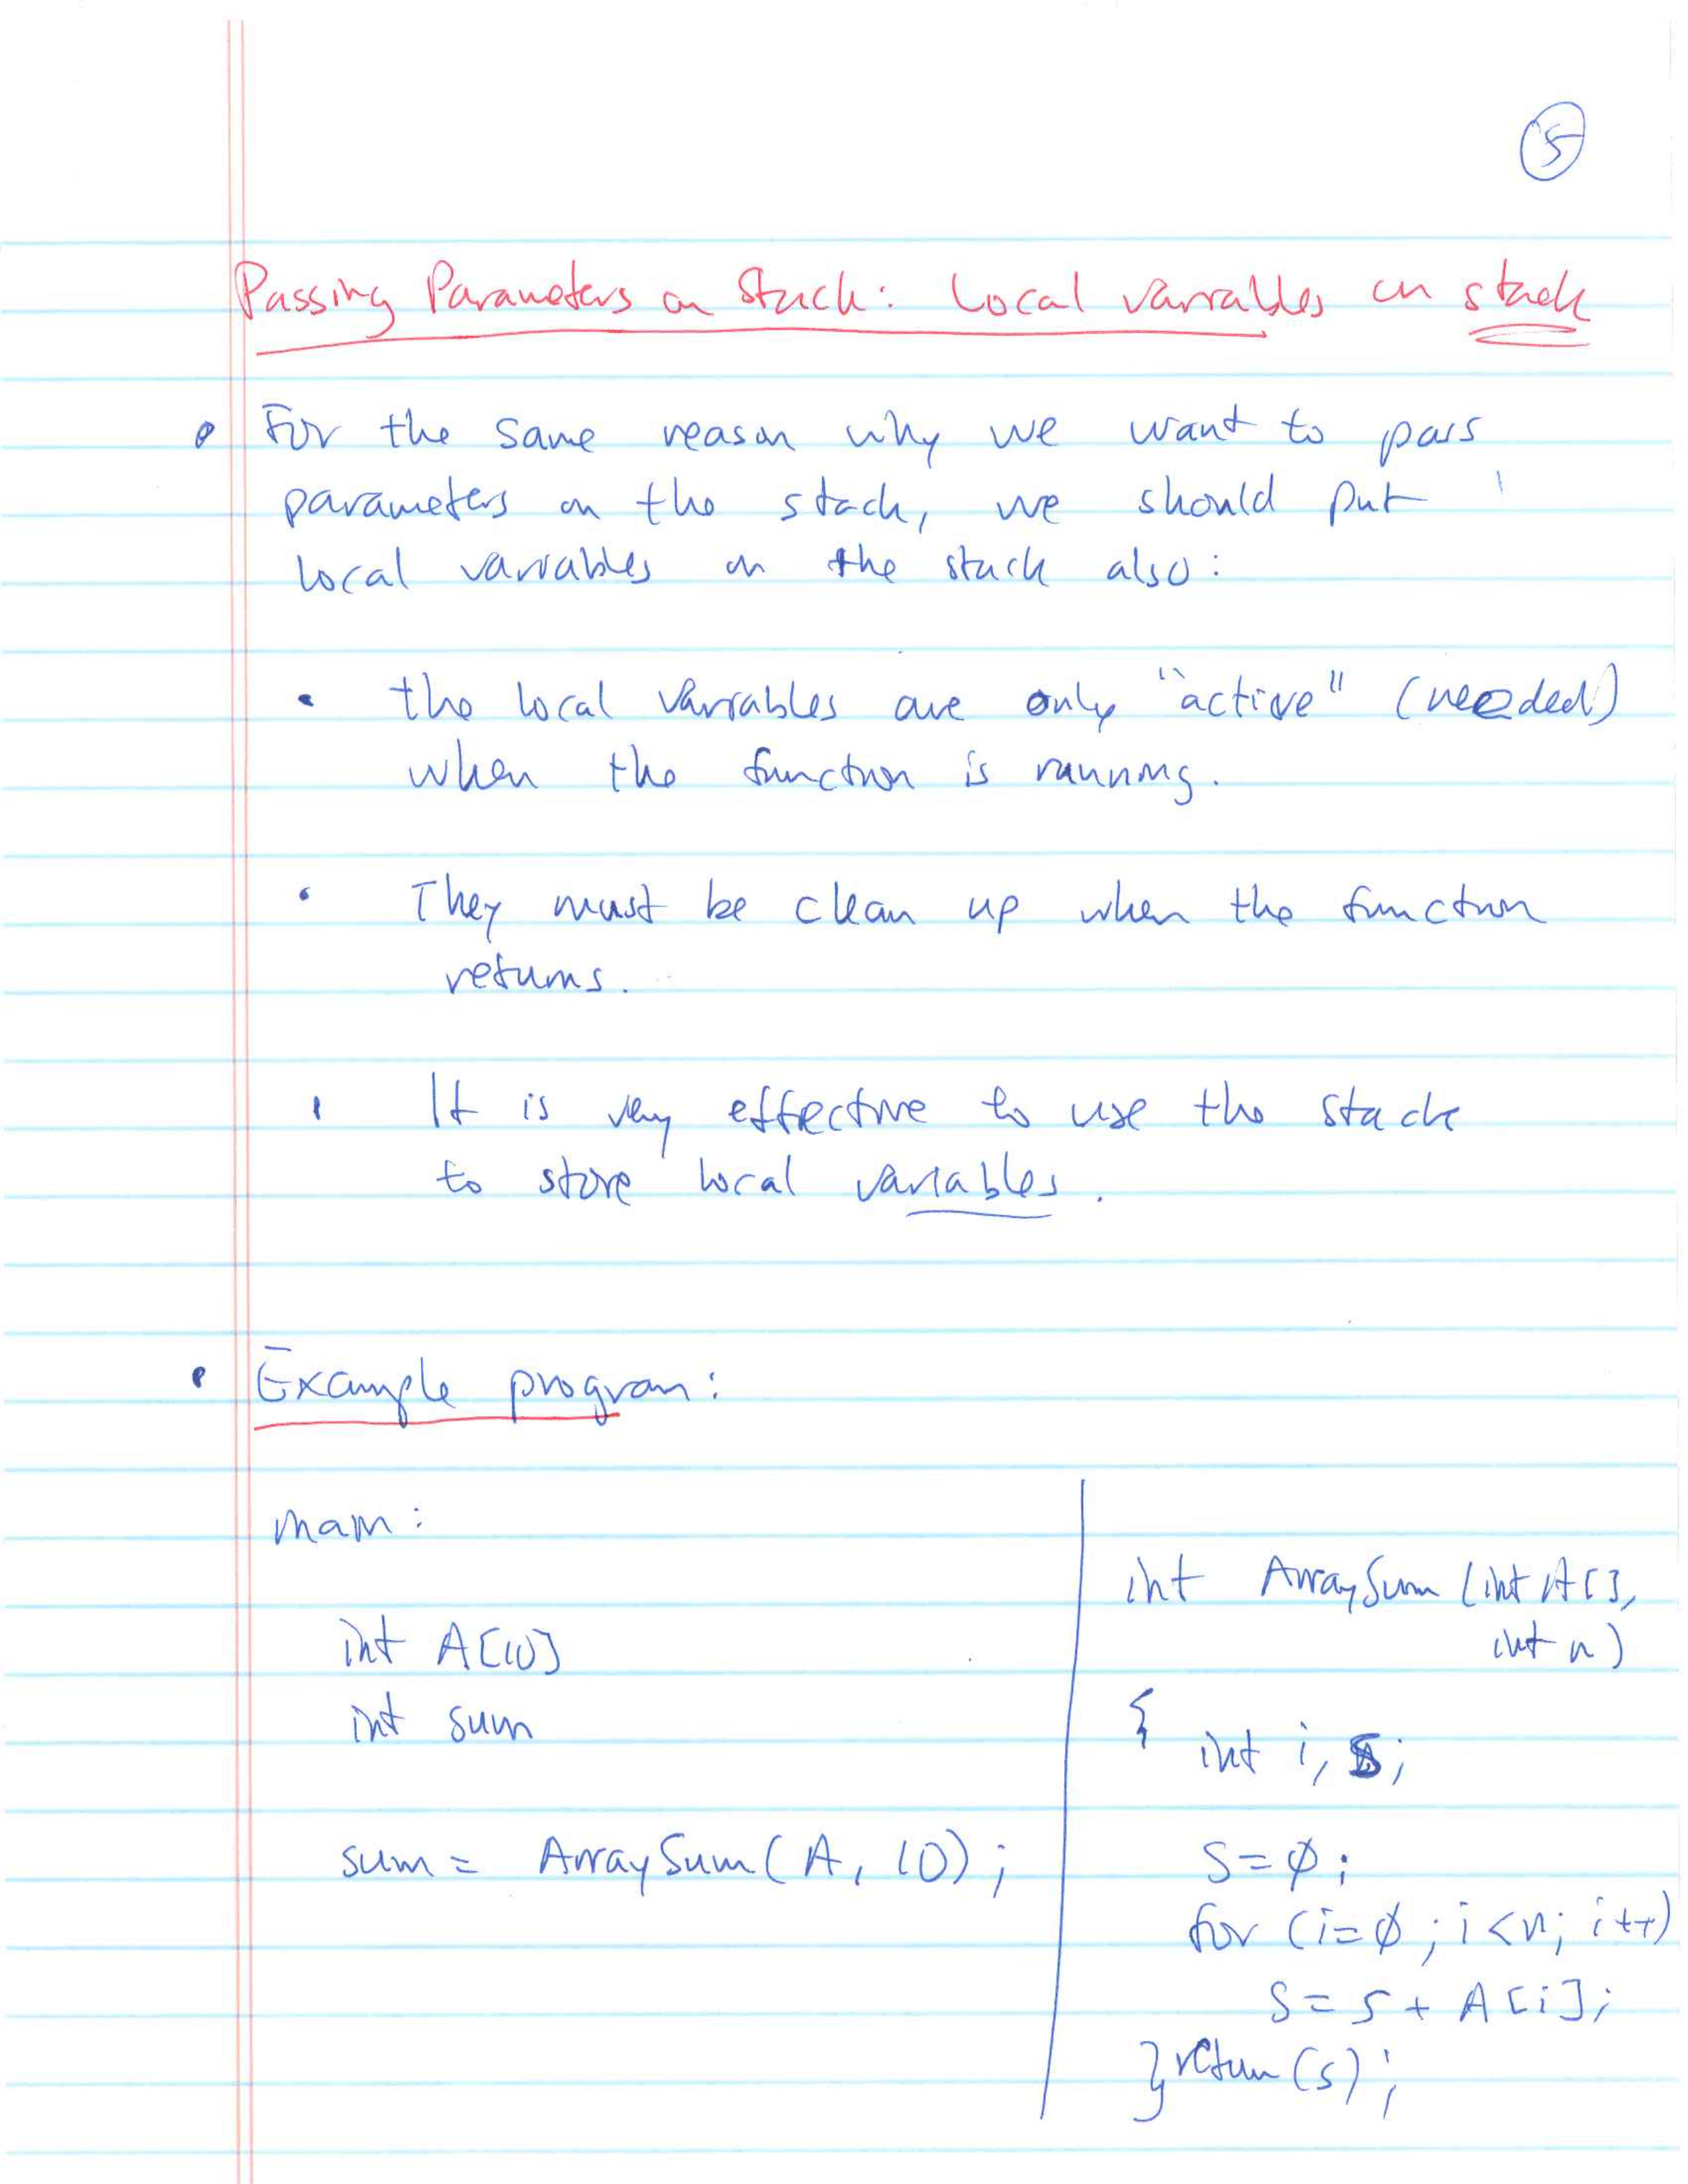 5
Passing Parameters on Stack: Local variables on stack
• For the same reason why we want to pass
parameters on the stack, we should put
local variables on the stack also:
• the local variables are only "active" (needed)
when the function is running.
• They must be clean up when the function
returns.
• It is very effective to use the stack
to store local variables.
• Example program:
main:
int A[10]
int sum
sum = ArraySum(A, 10);
int ArraySum (int A[],
int n)
{
int i, s;
s=ø;
for (i=ø; i<n; i++)
s = s + A[i];
} return (s);